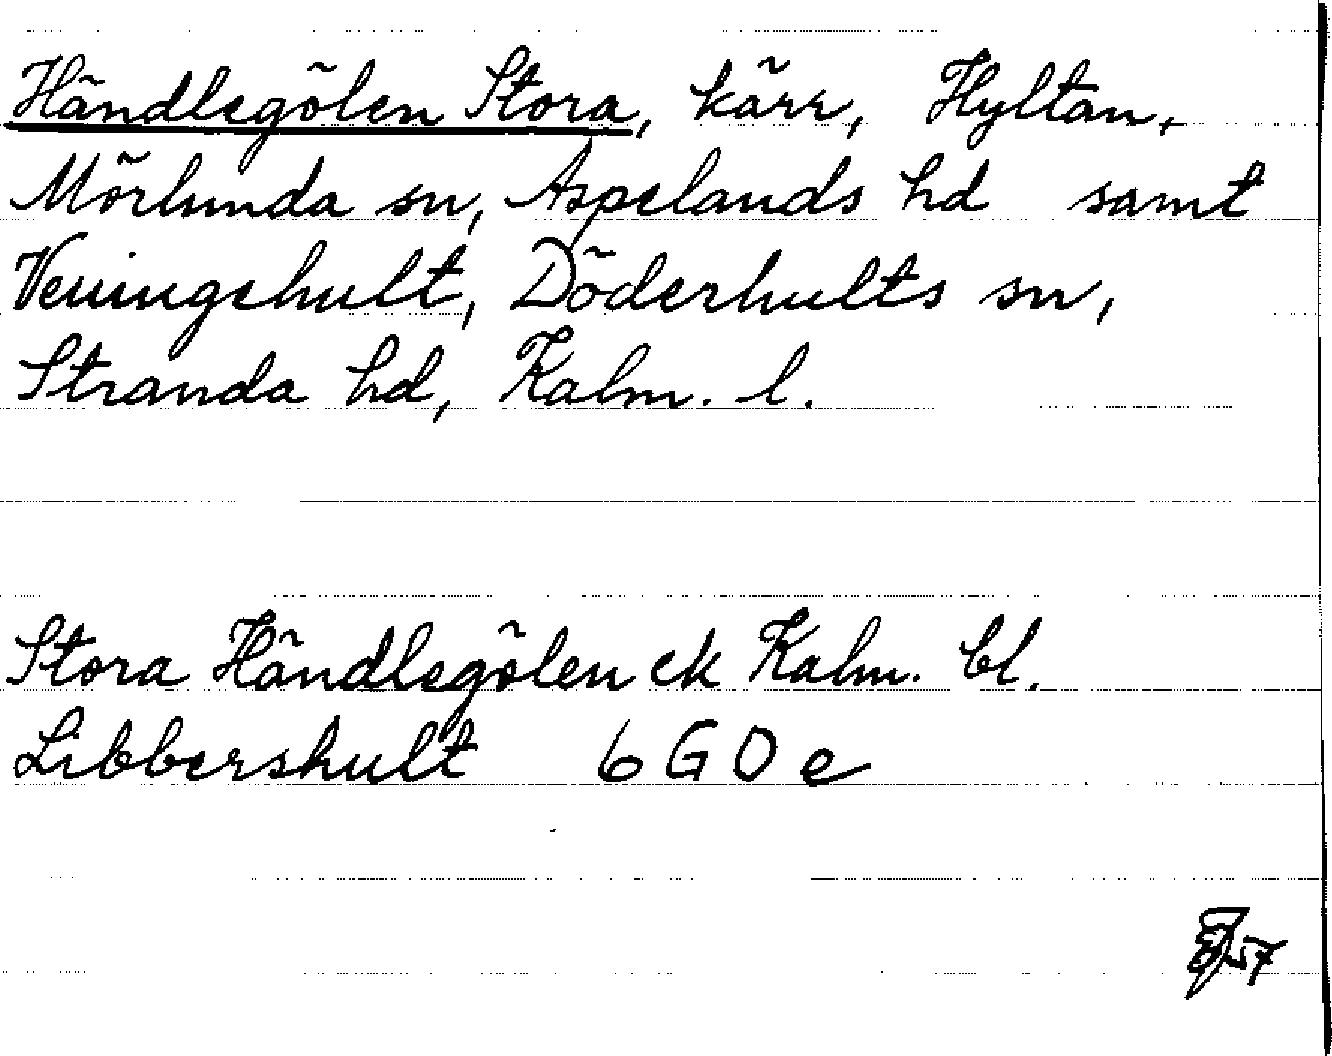 Händlegölen Stora, kärr, Hyltan,
Mörlunda sn, Aspelands hd samt
Veningehult, Döderhults sn,
Stranda hd, Kalm. l.
Stora Händlegölen ek Kalm. bl.
Libbershult 6 G 0 e
57